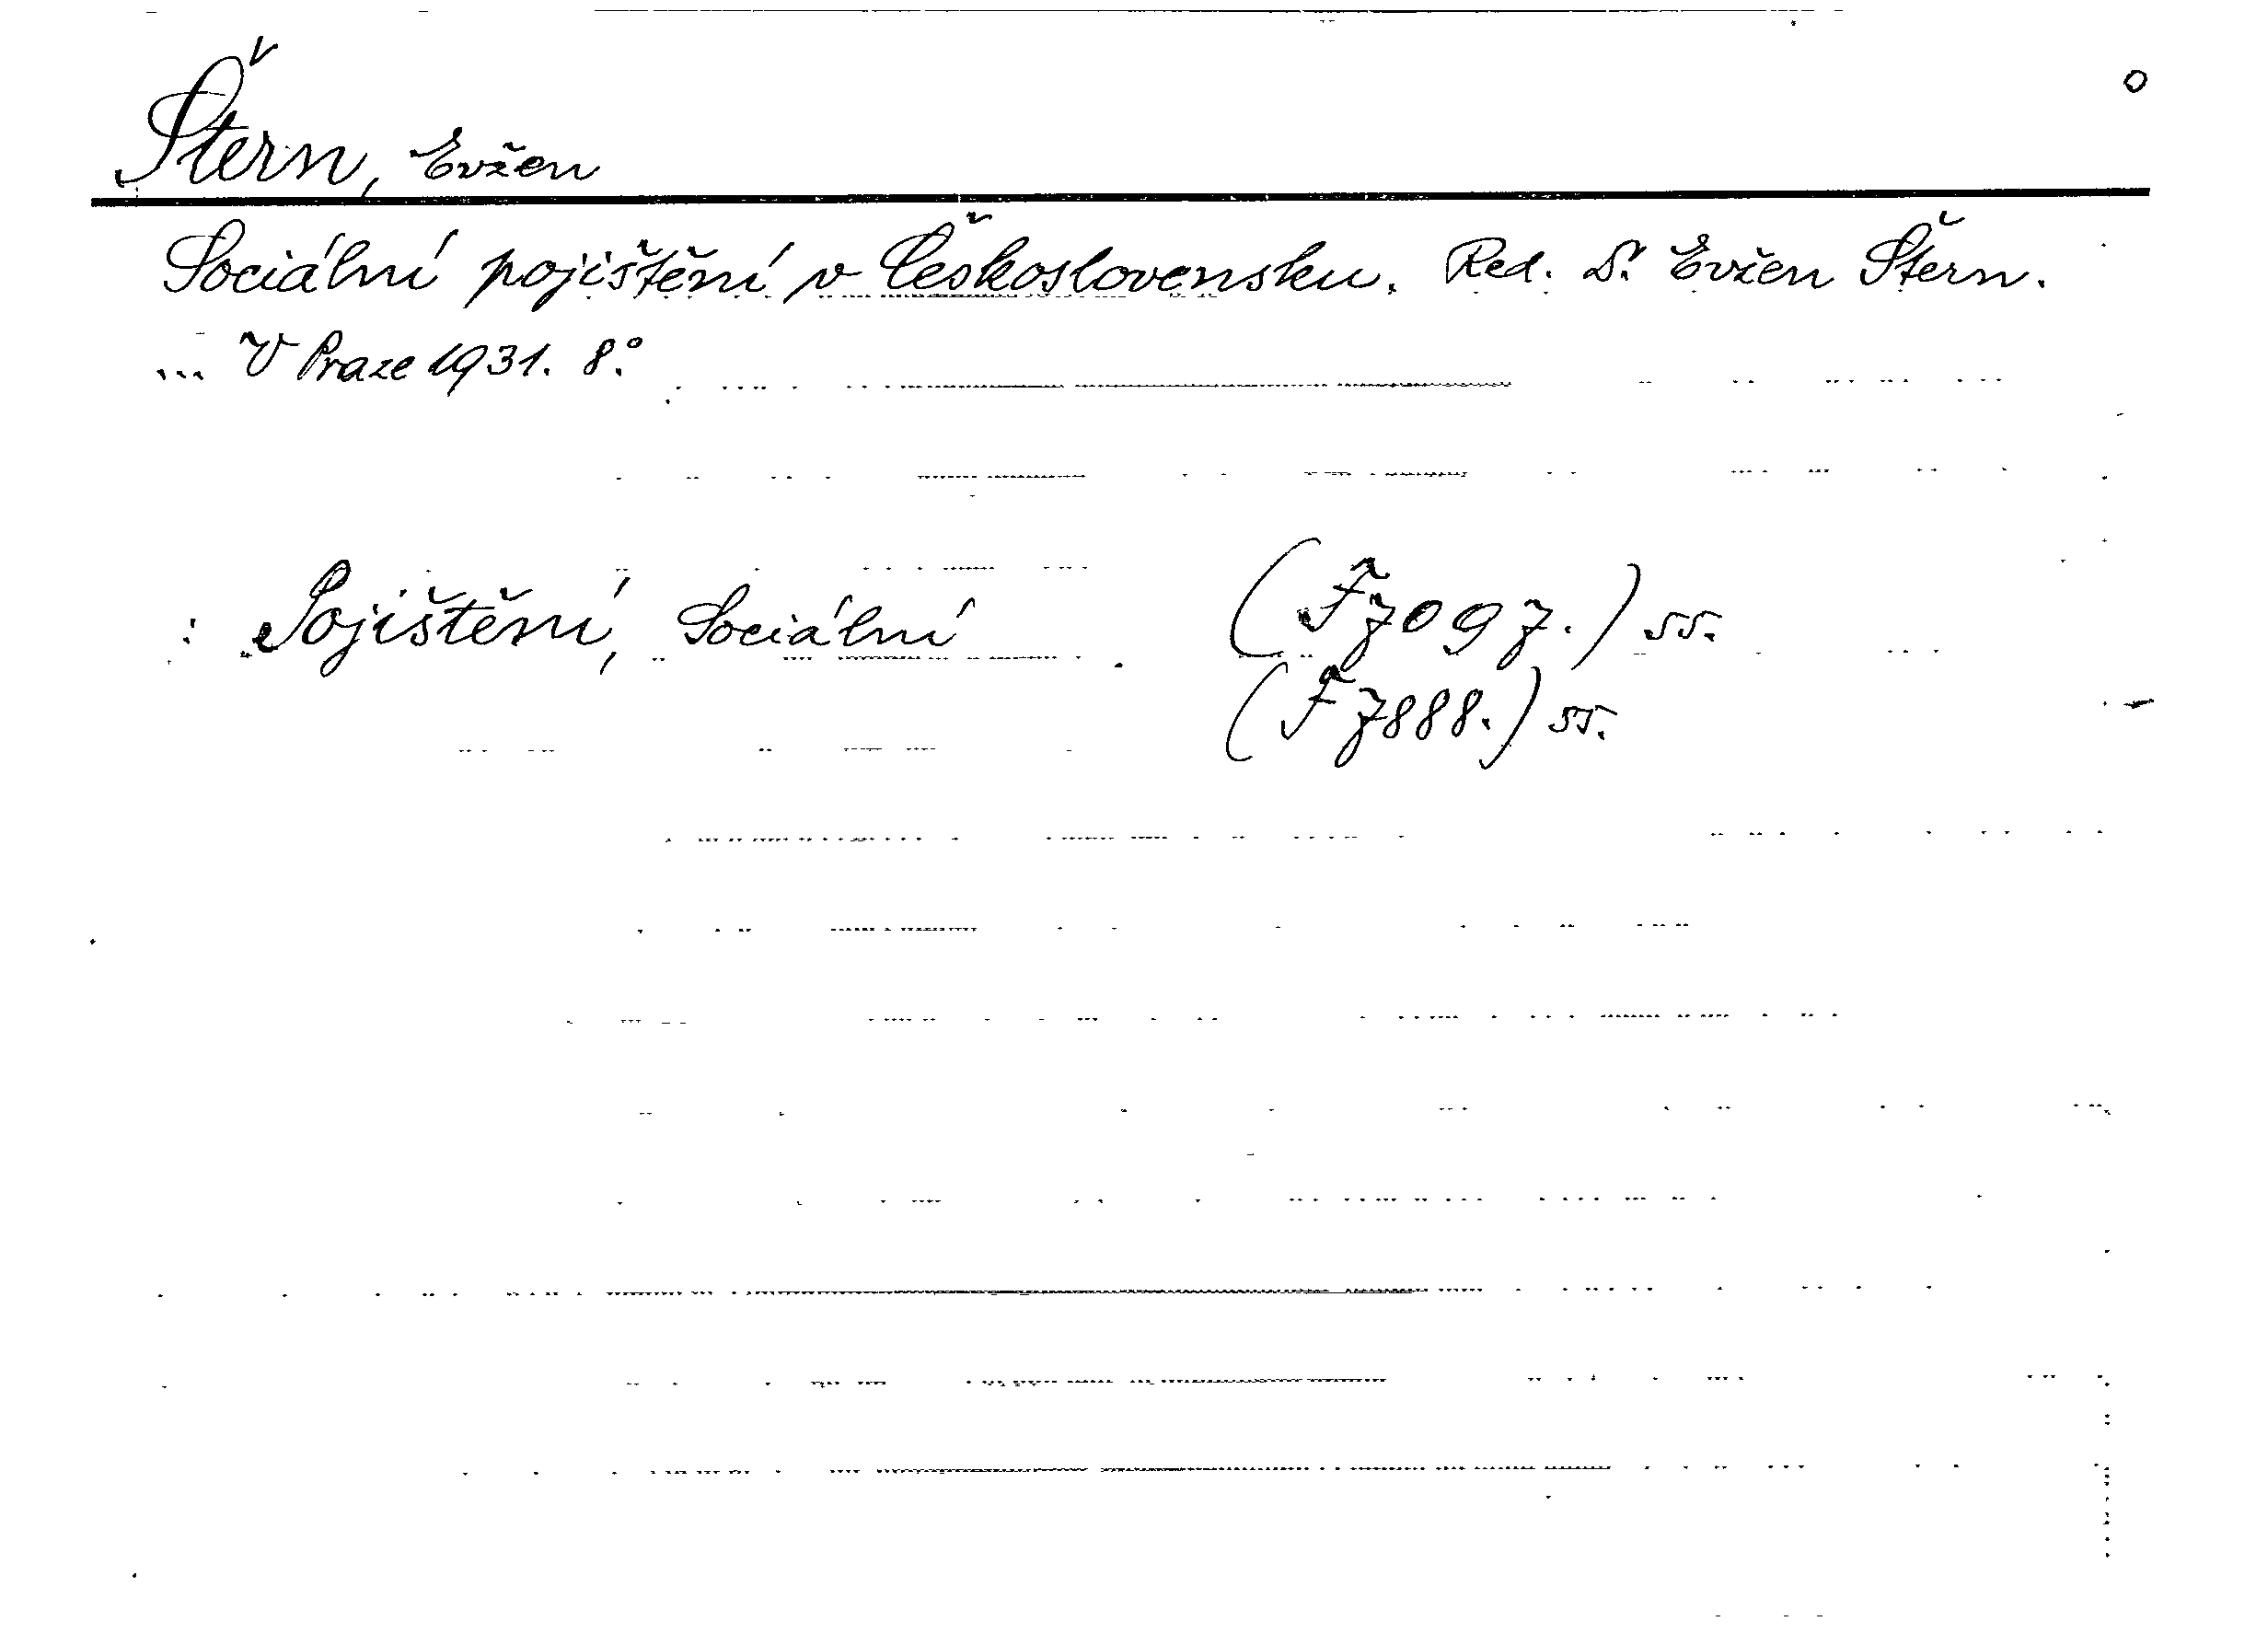 o
Štern, Evžen
Sociální pojištění v Československu. Red. Dr. Evžen Štern.
... V Praze 1931. 8°.
: Pojištění, Sociální (F 7097.) 55.
(F 7888.) 55.